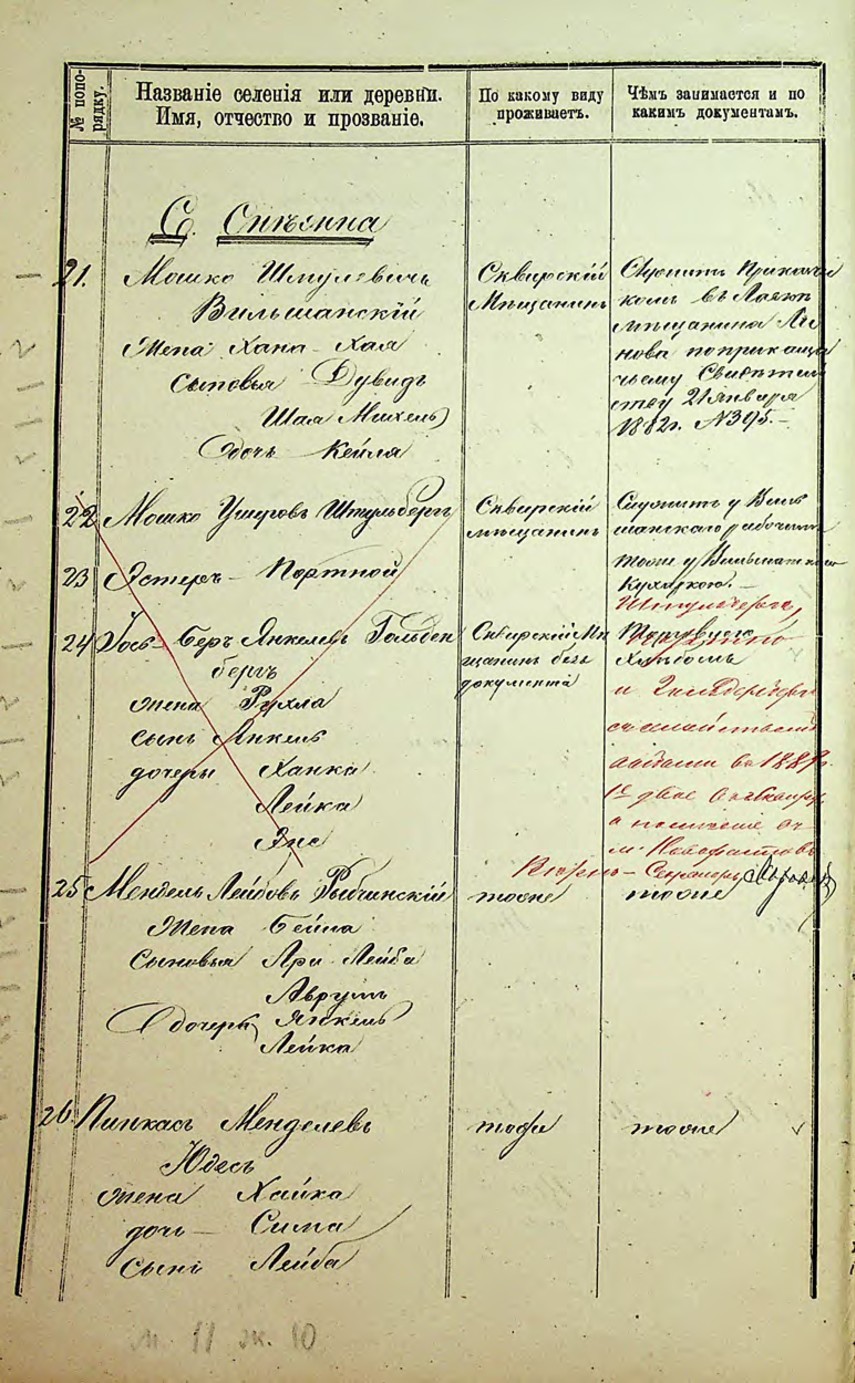 № попо-
рядку.
Названіе селенія или деревни.
Имя, отчество и прозваніе.
По какому виду
проживаетъ.
Чѣмъ занимается и по
какимъ документамъ.
С.
21.
Мошко Шмулевичъ
Вильшанскій
жена Хана-Хая
сыновья Дувидъ
Шая Михель
дочь Кейля
Сквирскій
Мѣщанинъ
Служитъ Приказчи
комъ въ
мѣщанина Ли
нова по приказчи
чьему Свидѣтель
ству 21 Января
1882г. №395.-
22
Мошко Умеровъ Штульбергъ
Сквирскій
мѣщанинъ
Служитъ у Виль
шанскаго рабочимъ
23
Эстеръ - Портной
тоже у Вильшанскаго
Кухаркою.-
24
Іось-Беръ Янкелевъ Гольден
бергъ
жена Рухла
сынъ Янкель
дочеры Ханка
Лейка
Энс
Сквирскій Мѣ
щанинъ безъ
документа
Торгуетъ
Хлѣбомъ
и
въ 1882г.
Вѣрно - Секретарь
25
Мендель Лейбовъ Рыбчинскій
жена Бейла
Сыновья Ари Лейба
Аврумъ
Янкель
дочерь Лейка
тоже
тоже
26.
Пинкасъ Менделевъ
Юдесъ
жена Хайка
дочь - Сима
Сынъ Лейба
тоже
тоже
м. 11 ж. 10